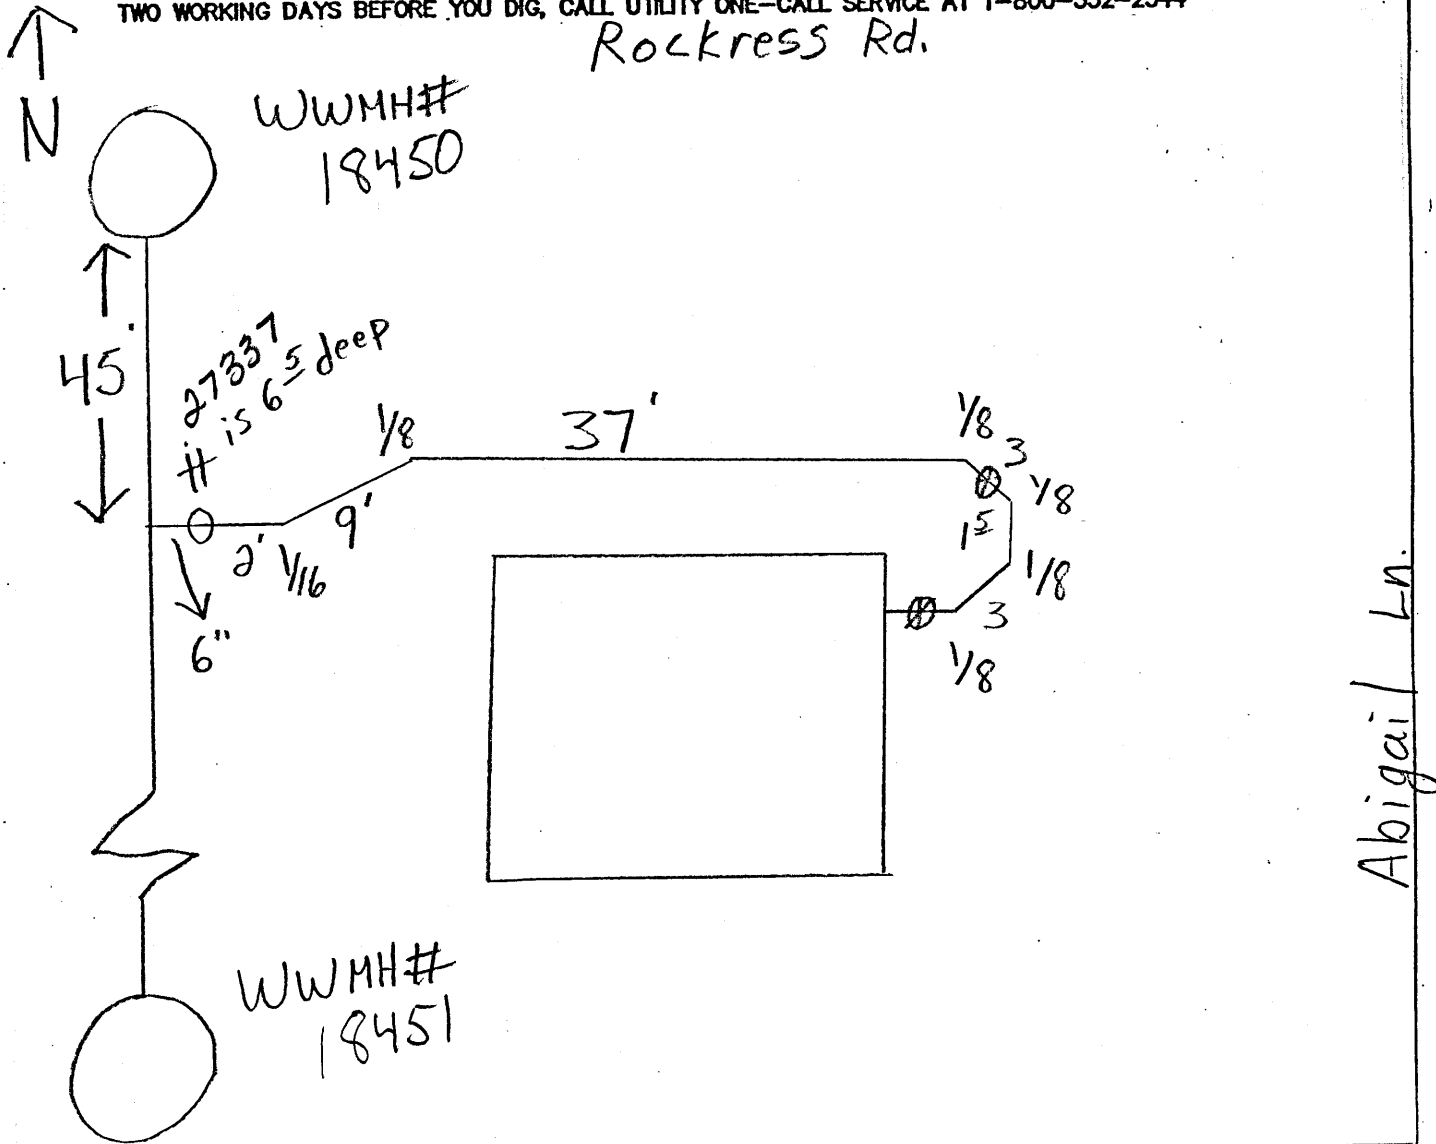 TWO WORKING DAYS BEFORE YOU DIG, CALL UTILITY ONE-CALL SERVICE AT 1-800-552-
Rockress Rd.
N
WWMH#
18450
45'
27337
# is 6 5 deep
1/8
37'
1/8
3
1/8
1 5
1/8
3
1/8
9'
2'
1/16
6"
Abigail Ln.
WWMH#
18451